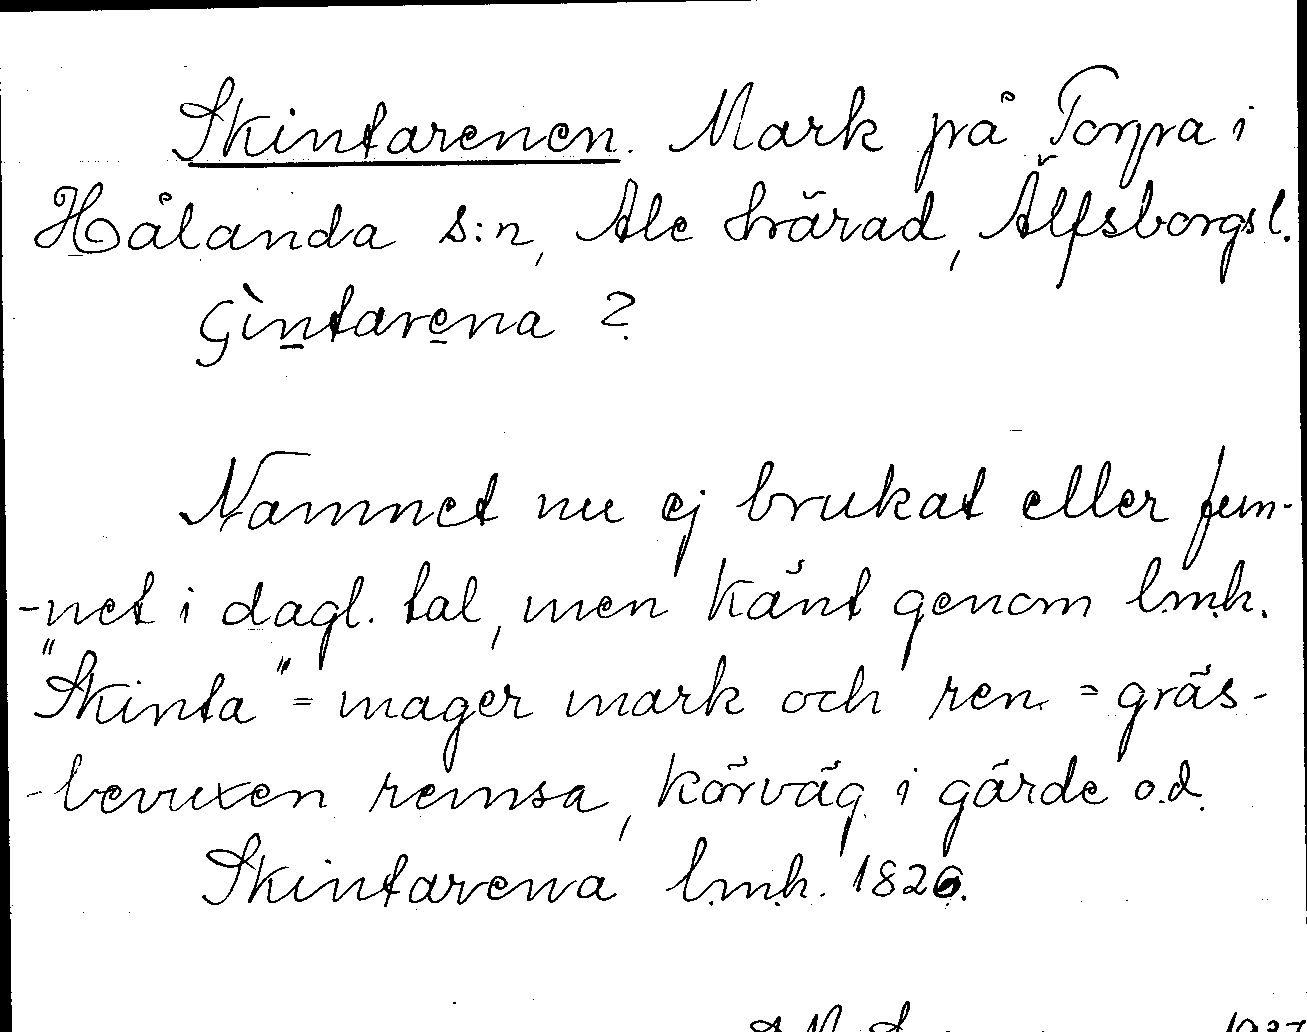 Skintarenen. Mark på Torpa i
Hålanda s:n, Ale härad, Älfsborgs l.
Gìntarena ?
Namnet nu ej brukat eller fun-
-net i dagl. tal, men känt genom l.m.h.
"Skinta" = mager mark och ren = gräs-
-bevuxen remsa, körväg i gärde o.d.
Skintarena l.m.h. 1826.